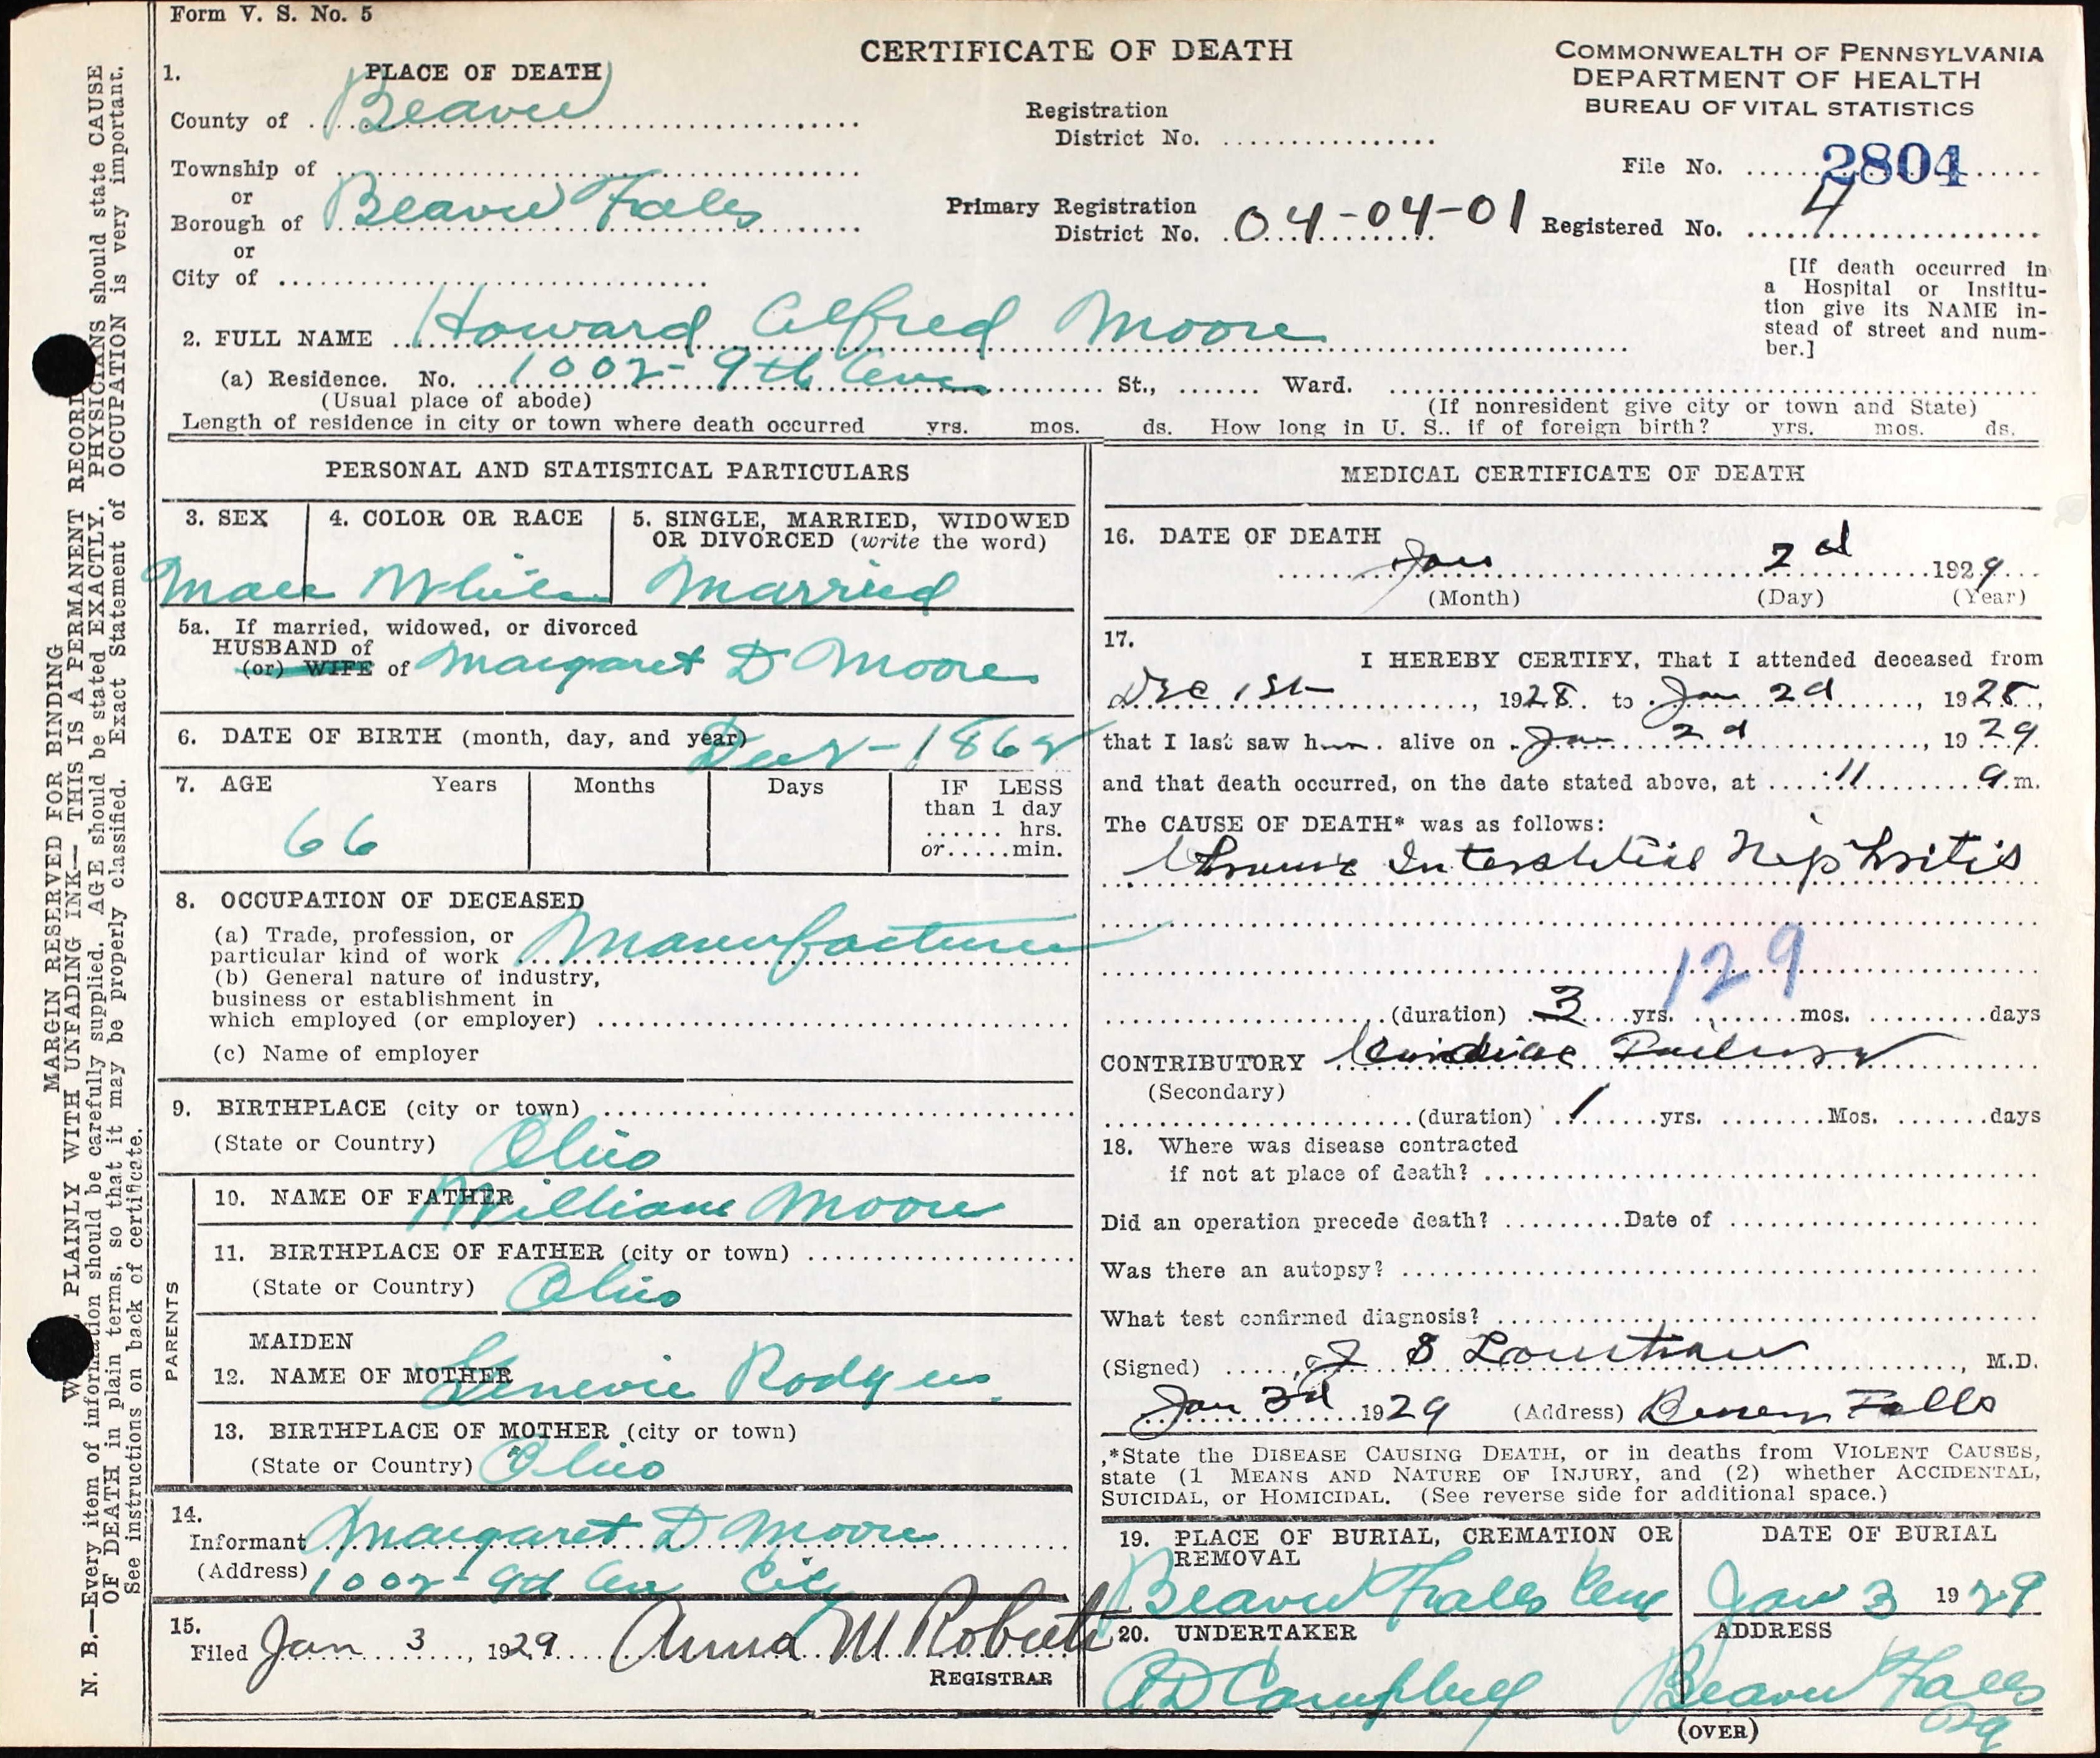 Form V. S. No. 5
CERTIFICATE OF DEATH
COMMONWEALTH OF PENNSYLVANIA
DEPARTMENT OF HEALTH
BUREAU OF VITAL STATISTICS
1. PLACE OF DEATH
County of Beaver
Township of
or
Borough of Beaver Falls
or
City of
Registration
District No.
Primary Registration
District No. 04-04-01
File No. 2804
Registered No. 4
[If death occurred in
a Hospital or Institu-
tion give its NAME in-
stead of street and num-
ber.]
2. FULL NAME Howard Alfred Moore
(a) Residence. No. 1002-9th Ave St., Ward.
(Usual place of abode) (If nonresident give city or town and State)
Length of residence in city or town where death occurred yrs. mos. ds. How long in U. S.. if of foreign birth? yrs. mos. ds.
PERSONAL AND STATISTICAL PARTICULARS
3. SEX
Male
4. COLOR OR RACE
White
5. SINGLE, MARRIED, WIDOWED
OR DIVORCED (write the word)
Married
5a. If married, widowed, or divorced
HUSBAND of
(or) WIFE of Margaret D Moore
6. DATE OF BIRTH (month, day, and year) 1862
7. AGE Years Months Days
66
IF LESS
than 1 day
hrs.
or min.
8. OCCUPATION OF DECEASED
(a) Trade, profession, or
particular kind of work Manufacturer
(b) General nature of industry,
business or establishment in
which employed (or employer)
(c) Name of employer
9. BIRTHPLACE (city or town)
(State or Country) Ohio
PARENTS
10. NAME OF FATHER William Moore
11. BIRTHPLACE OF FATHER (city or town)
(State or Country) Ohio
MAIDEN
12. NAME OF MOTHER Rodgers
13. BIRTHPLACE OF MOTHER (city or town)
(State or Country) Ohio
14.
Informant Margaret D Moore
(Address) 1002-9th Ave City
15.
Filed Jan 3, 1929 Anna M Roberts
REGISTRAR
MEDICAL CERTIFICATE OF DEATH
16. DATE OF DEATH
Jan 2d 1929
(Month) (Day) (Year)
17.
I HEREBY CERTIFY, That I attended deceased from
Dec 1st, 1928. to Jan 2d, 1928.,
that I last saw h alive on Jan 2d, 1929.
and that death occurred, on the date stated above, at 11 a.m.
The CAUSE OF DEATH* was as follows:
Chronic Interstitial Nephritis
129
(duration) 3 yrs. mos. days
CONTRIBUTORY Cardiac Failure
(Secondary)
(duration) 1 yrs. Mos. days
18. Where was disease contracted
if not at place of death?
Did an operation precede death? Date of
Was there an autopsy?
What test confirmed diagnosis?
(Signed) J S Louthan, M.D.
Jan 3d 1929 (Address) Beaver Falls
*State the DISEASE CAUSING DEATH, or in deaths from VIOLENT CAUSES,
state (1 MEANS AND NATURE OF INJURY, and (2) whether ACCIDENTAL,
SUICIDAL, or HOMICIDAL. (See reverse side for additional space.)
19. PLACE OF BURIAL, CREMATION OR
REMOVAL
Beaver Falls Cem
DATE OF BURIAL
Jan 3 1929
20. UNDERTAKER
Campbell
ADDRESS
Beaver Falls
Pa
(OVER)
MARGIN RESERVED FOR BINDING
PLAINLY WITH UNFADING INK— THIS IS A PERMANENT RECORD
N. B.—Every item of information should be carefully supplied. AGE should be stated EXACTLY. PHYSICIANS should state CAUSE
OF DEATH in plain terms, so that it may be properly classified. Exact Statement of OCCUPATION is very important.
See instructions on back of certificate.